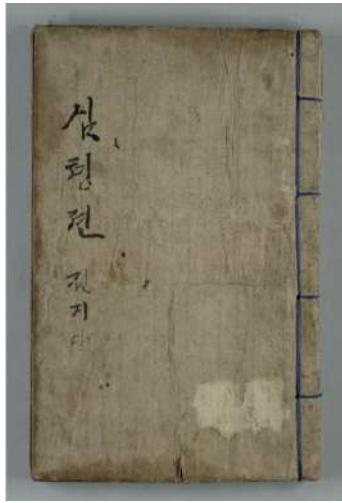 심쳥젼
권지단